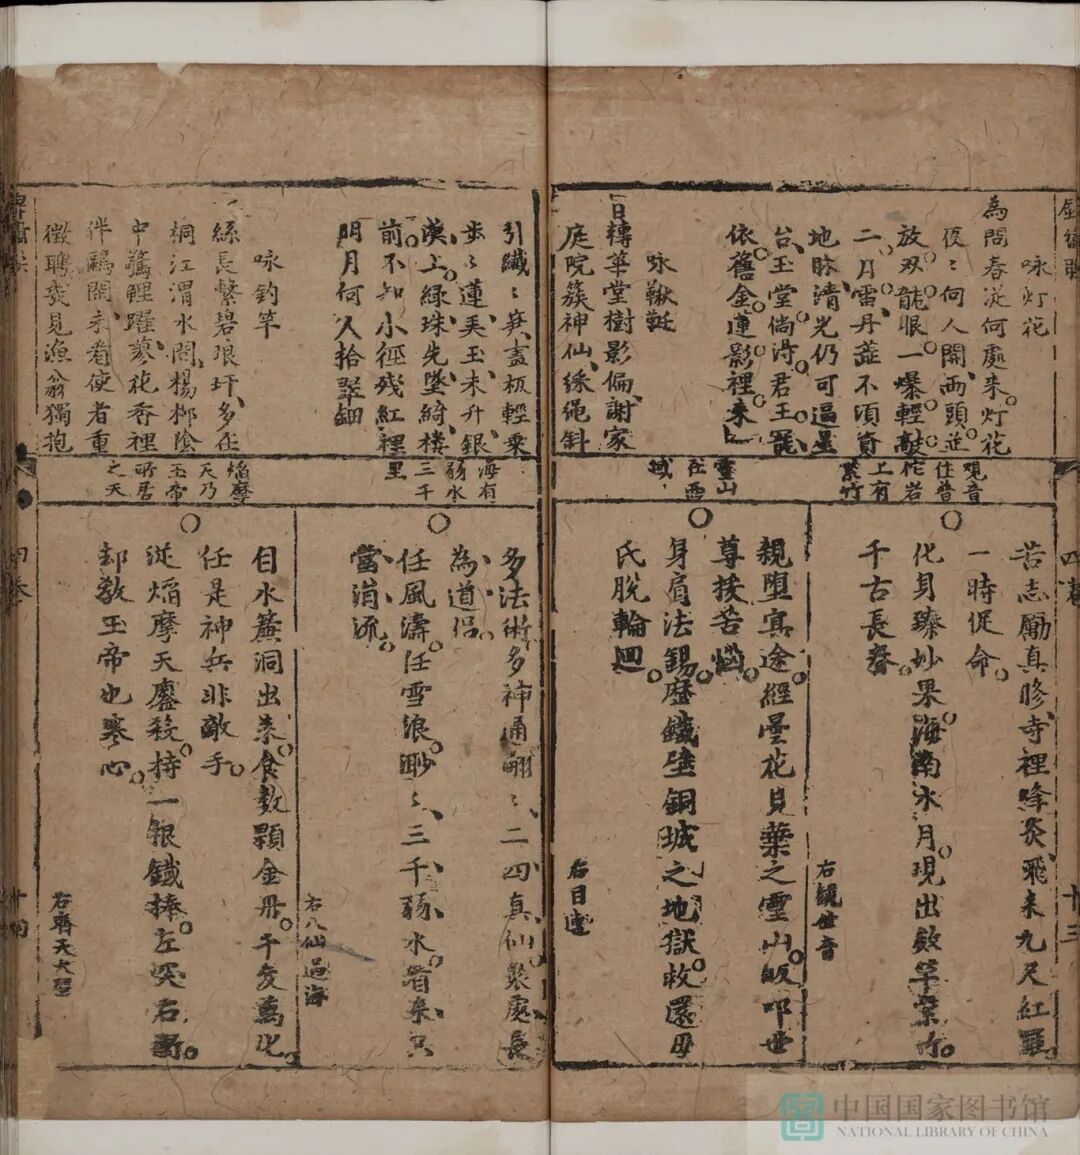 咏灯花
為問春從何處来灯花
夜〻何人開兩頭並
放双龍眼一爆輕敲
二月雷丹蕋不須資
地脉清光仍可逼星
台玉堂倘淂君王
依舊金蓮影裡来
咏鞦韆
日轉華堂樹影偏謝家
庭院簇神仙綵繩斜
引纎〻笋畫板輕乗
步〻蓮美玉未升銀
漢上緑珠先墜綺楼
前不知小徑残紅裡
明月何人拾翠鈿
咏釣竿
絲長繫碧琅玕多在
桐江渭水間楊柳陰
中驚鯉躍蓼花香裡
伴鷗閑来看使者重
徵聘幾見漁翁獨抱
觀音
住普
陀岩
上有
紫竹
靈山
在西
域
海有
弱水
三千
里
焰摩
天乃
玉帝
所居
之天
苦志勵真脩寺裡烽炎飛来九尺紅羅
一時促命
化身臻妙果海南水月現出數竿紫竹
千古長春
右觀世音
親堕冥途經曇花貝葉之靈山皈叩世
尊援苦惱
身肩法錫歷鐵壁銅城之地獄救還母
氏脫輪迴
右目連
多法術多神通翩〻二四真仙聚處長
為道侣
任風濤任雪浪渺〻三千弱水看来只
當涓流
右八仙過海
自水簾洞出来食数顆金丹千变萬化
任是神兵非敵手
從焰摩天鏖殺持一根鐵捧左突右衝
却教玉帝也寒心
右齊天大聖
四卷
十三
四卷
十四
中国国家图书馆
NATIONAL LIBRARY OF CHINA